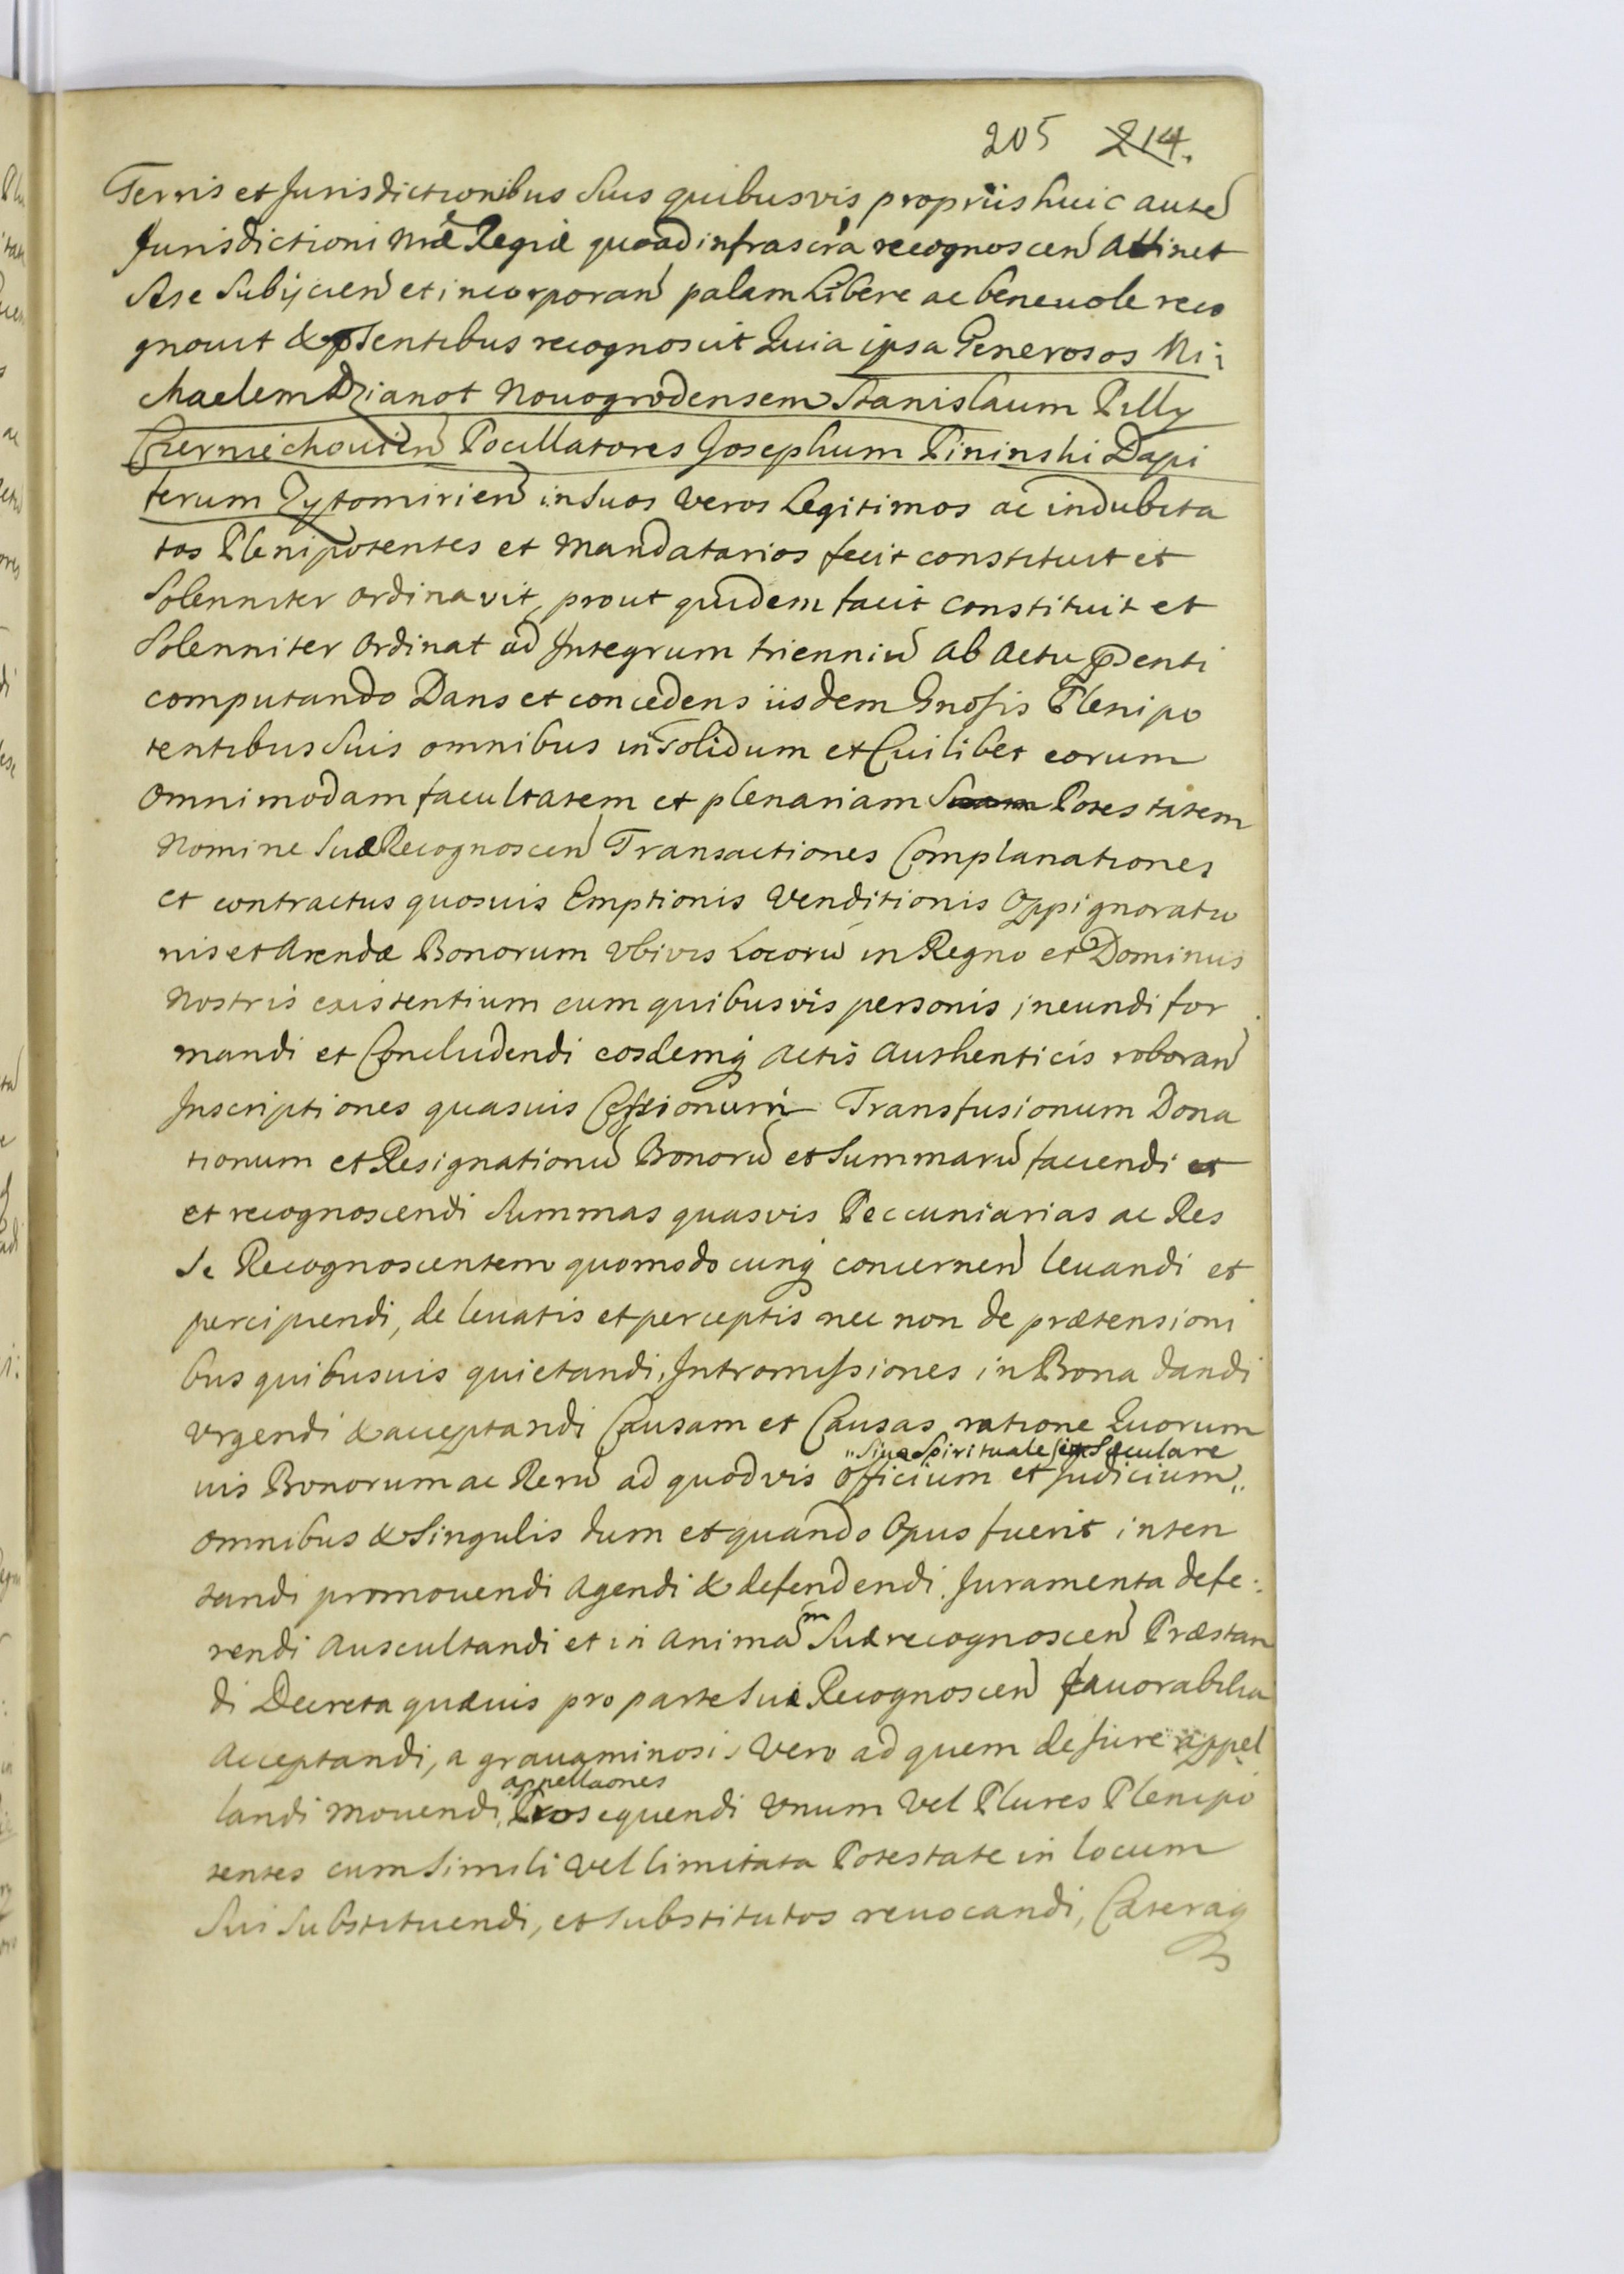 205 214.
Terris et Jurisdictionibus Suis quibusvis proprijs huic aute
Jurisdictioni Mae Regiae quoad infrascra recognoscen Attinet
Se Subijcien et incorporan palam Libere ac beneuole reco
gnouit & pSentibus recognoscit Quia ipsa Generosos Mi:
chaelem Dzianot Nouogrodensem Stanislaum Pilly
Czerniechouien Pocillatores Josephum Pininski Dapi
ferum Zytomirien in Suos Veros Legitimos ac indubita
tos Plenipotentes et Mandatarios fecit constituit et
Solenniter ordinavit, prout quidem facit constituit et
Solenniter Ordinat ad Integrum trienniu Ab Actu pSenti
computando Dans et concedens iisdem Gnosis Plenipo
tentibus Suis omnibus in Solidum et Cuilibet eorum
Omnimodam facultatem et plenariam Suam Potestatem
Nomine Suae Recognoscen Transactiones Complanationes
et contractus quosuis Emptionis Venditionis Oppignoratio
nis et Arendae Bonorum Vbivis Locoru in Regno et Dominijs
Nostris existentium cum quibusvis personis ineundi for
mandi et Concludendi eosdemq Actis Authenticis roboran
Inscriptiones quasuis Cessionum Transfusionum Dona
tionum et Resignationu Bonoru et Summaru faciendi et
et recognoscendi Summas quasvis Peccuniarias ac Res
Se Recognoscentem quomodocunq concernen leuandi et
percipiendi, de leuatis et perceptis nec non de praetensioni
bus quibusuis quietandi, Intromissiones in Bona dandi
Vrgendi & acceptandi Causam et Causas ratione Quorum
„Siue Spirituale siue Saeculare
uis Bonorum ac Reru ad quodvis Officium et Judicium„
omnibus & Singulis dum et quando Opus fuerit inten
tandi promouendi Agendi & defendendi. Juramenta defe:
rendi Auscultandi et in Animam Suae recognoscen Praestan
di Decreta quaeuis pro parte Suae Recognoscen fauorabilia
Acceptandi, a grauaminosis Vero ad quem de Jure appel
appellaones
landi Mouendi, Prosequendi Vnum Vel Plures Plenipo
tentes cum Simili Vel limitata Potestate in locum
Sui Substituendi, et substitutos reuocandi, Caeteraq